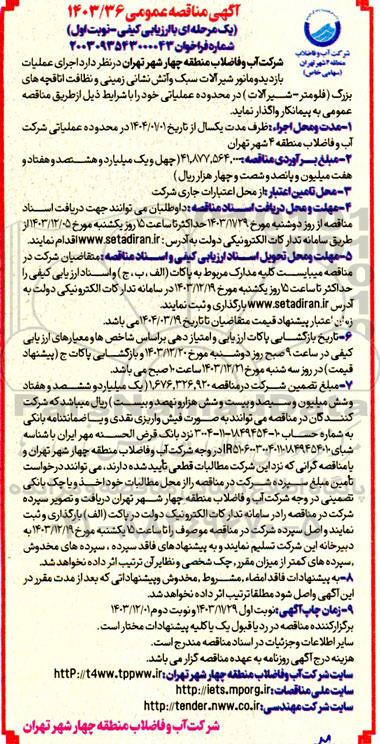 آگهی مناقصه عمومی ۱۴۰۳/۳۶
(یک مرحله ای با ارزیابی کیفی - نوبت اول)
شماره فراخوان ۲۰۰۳۰۹۳۵۴۳۰۰۰۰۴۳
شرکت آب و فاضلاب
منطقه ۴ شهر تهران
(سهامی خاص)
شرکت آب و فاضلاب منطقه چهار شهر تهران در نظر دارد اجرای عملیات
بازدید و مانور شیرآلات سبک و آتش نشانی زمینی و نظافت اتاقچه های
بزرگ (فلومتر - شیرآلات) در محدوده عملیاتی خود را با شرایط ذیل از طریق مناقصه
عمومی به پیمانکار واگذار نماید.
۱- مدت و محل اجراء: ظرف مدت یکسال از تاریخ ۱۴۰۴/۰۱/۰۱ در محدوده عملیاتی شرکت
آب و فاضلاب منطقه ۴ شهر تهران
۲- مبلغ برآوردی مناقصه: ۴۱,۸۷۷,۵۶۴,۰۰۰ (چهل و یک میلیارد و هشتصد و هفتاد و
هفت میلیون و پانصد و شصت و چهار هزار ریال)
۳- محل تامین اعتبار: از محل اعتبارات جاری شرکت
۴- مهلت و محل دریافت اسناد مناقصه: داوطلبان می توانند جهت دریافت اسناد
مناقصه از روز دوشنبه مورخ ۱۴۰۳/۱۱/۲۹ حداکثر تا ساعت ۱۵ روز یکشنبه مورخ ۱۴۰۳/۱۲/۰۵ از
طریق سامانه تدارکات الکترونیکی دولت به آدرس: www.setadiran.ir اقدام نمایند.
۵- مهلت و محل تحویل اسناد ارزیابی کیفی و اسناد مناقصه: متقاضیان شرکت در
مناقصه میبایست کلیه مدارک مربوط به پاکات (الف، ب، ج) و اسناد ارزیابی کیفی را
حداکثر تا ساعت ۱۵ روز یکشنبه مورخ ۱۴۰۳/۱۲/۱۹ در سامانه تدارکات الکترونیکی دولت به
آدرس www.setadiran.ir بارگذاری و ثبت نمایند.
زمان اعتبار پیشنهاد قیمت متقاضیان تا تاریخ ۱۴۰۴/۰۳/۱۹ می باشد.
۶- تاریخ بازگشایی پاکات ارزیابی و امتیاز دهی براساس شاخص ها و معیارهای ارزیابی
کیفی در ساعت ۹ صبح روز دوشنبه مورخ ۱۴۰۳/۱۲/۲۰ و بازگشایی پاکات ج (پیشنهاد
قیمت) در روز سه شنبه مورخ ۱۴۰۳/۱۲/۲۱ ساعت ۱۰ صبح می باشد.
۷- مبلغ تضمین شرکت در مناقصه ۱,۶۷۶,۳۲۶,۹۲۰ (یک میلیارد و ششصد و هفتاد
و شش میلیون و سیصد و بیست و شش هزار و نهصد و بیست) ریال میباشد که شرکت
کنندگان در مناقصه می توانند به صورت فیش واریز نقدی و یا ضمانتنامه بانکی
به شماره حساب نزد بانک قرض الحسنه مهر ایران با شناسه
شبای در وجه شرکت آب و فاضلاب منطقه چهار شهر تهران و
یا مناقصه گرانی که نزد این شرکت مطالبات قطعی تأیید شده دارند، می توانند درخواست
تأمین مبلغ سپرده شرکت در مناقصه را از محل مطالبات خود اخذ و یا چک بانکی
تضمینی در وجه شرکت آب و فاضلاب منطقه چهار شهر تهران دریافت و تصویر سپرده
شرکت در مناقصه را در سامانه تدارکات الکترونیک دولت در پاکت (الف) بارگذاری و ثبت
نمایند و اصل سپرده شرکت در مناقصه موصوف را تا ساعت ۱۵ یکشنبه مورخ ۱۴۰۳/۱۲/۱۹ به
دبیرخانه این شرکت تسلیم نمایند و به پیشنهادهای فاقد سپرده، سپرده های مخدوش
،سپرده های کمتر از میزان مقرر، چک شخصی و نظایر آن ترتیب اثر داده نخواهد شد.
۸- به پیشنهادات فاقد امضاء، مشروط، مخدوش و پیشنهاداتی که بعد از مدت مقرر در
این آگهی واصل شود مطلقا ترتیب اثر داده نخواهد شد.
۹- زمان چاپ آگهی: نوبت اول ۱۴۰۳/۱۱/۲۹ و نوبت دوم ۱۴۰۳/۱۲/۰۱
برگزار کننده مناقصه در رد یا قبول یک یا کلیه پیشنهادات مختار است.
سایر اطلاعات و جزئیات در اسناد مناقصه مندرج است.
هزینه درج آگهی روزنامه به عهده مناقصه گزار می باشد.
سایت شرکت آب و فاضلاب منطقه چهار شهر تهران: http://t4ww.tppww.ir
سایت ملی مناقصات: http://iets.mporg.ir
سایت شرکت مهندسی: http://tender.nww.co.ir
شرکت آب و فاضلاب منطقه چهار شهر تهران